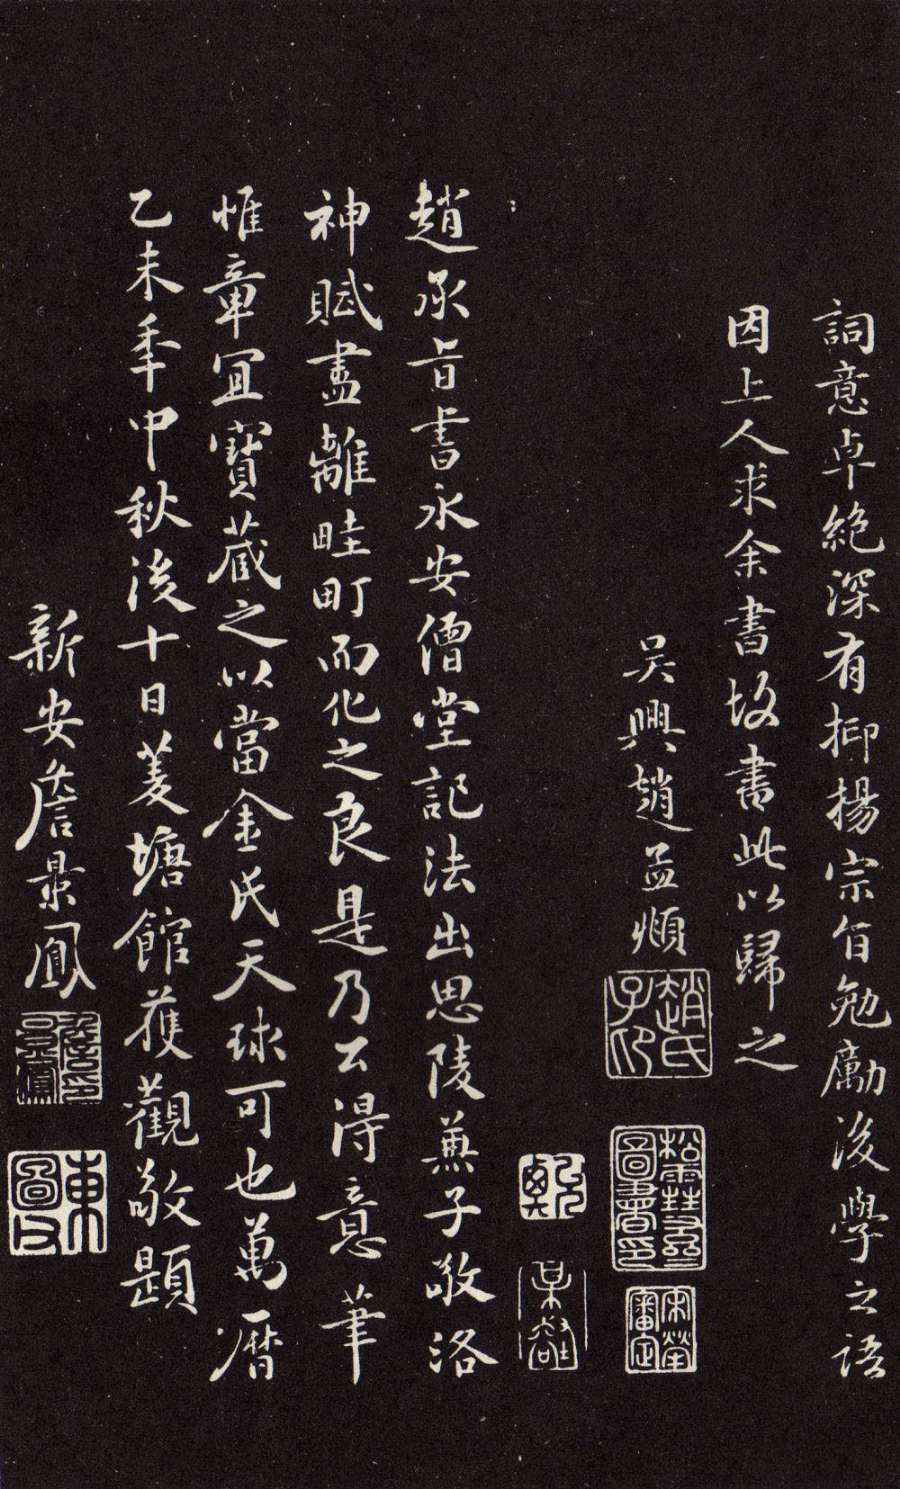 詞意卓絶深有抑揚宗旨勉勵後學之語
因上人求余書故書此以歸之
吳興趙孟頫
趙氏子印
松雪齋圖書印
宋犖審定
趙承旨書永安僧堂記法出思陵兼子敬洛
神賦盡離畦町而化之良是乃公得意筆
惟章冝寶藏之以當金氏天球可也萬曆
乙未年中秋後十日菱塘館獲觀敬題
新安詹景鳳
東圖父